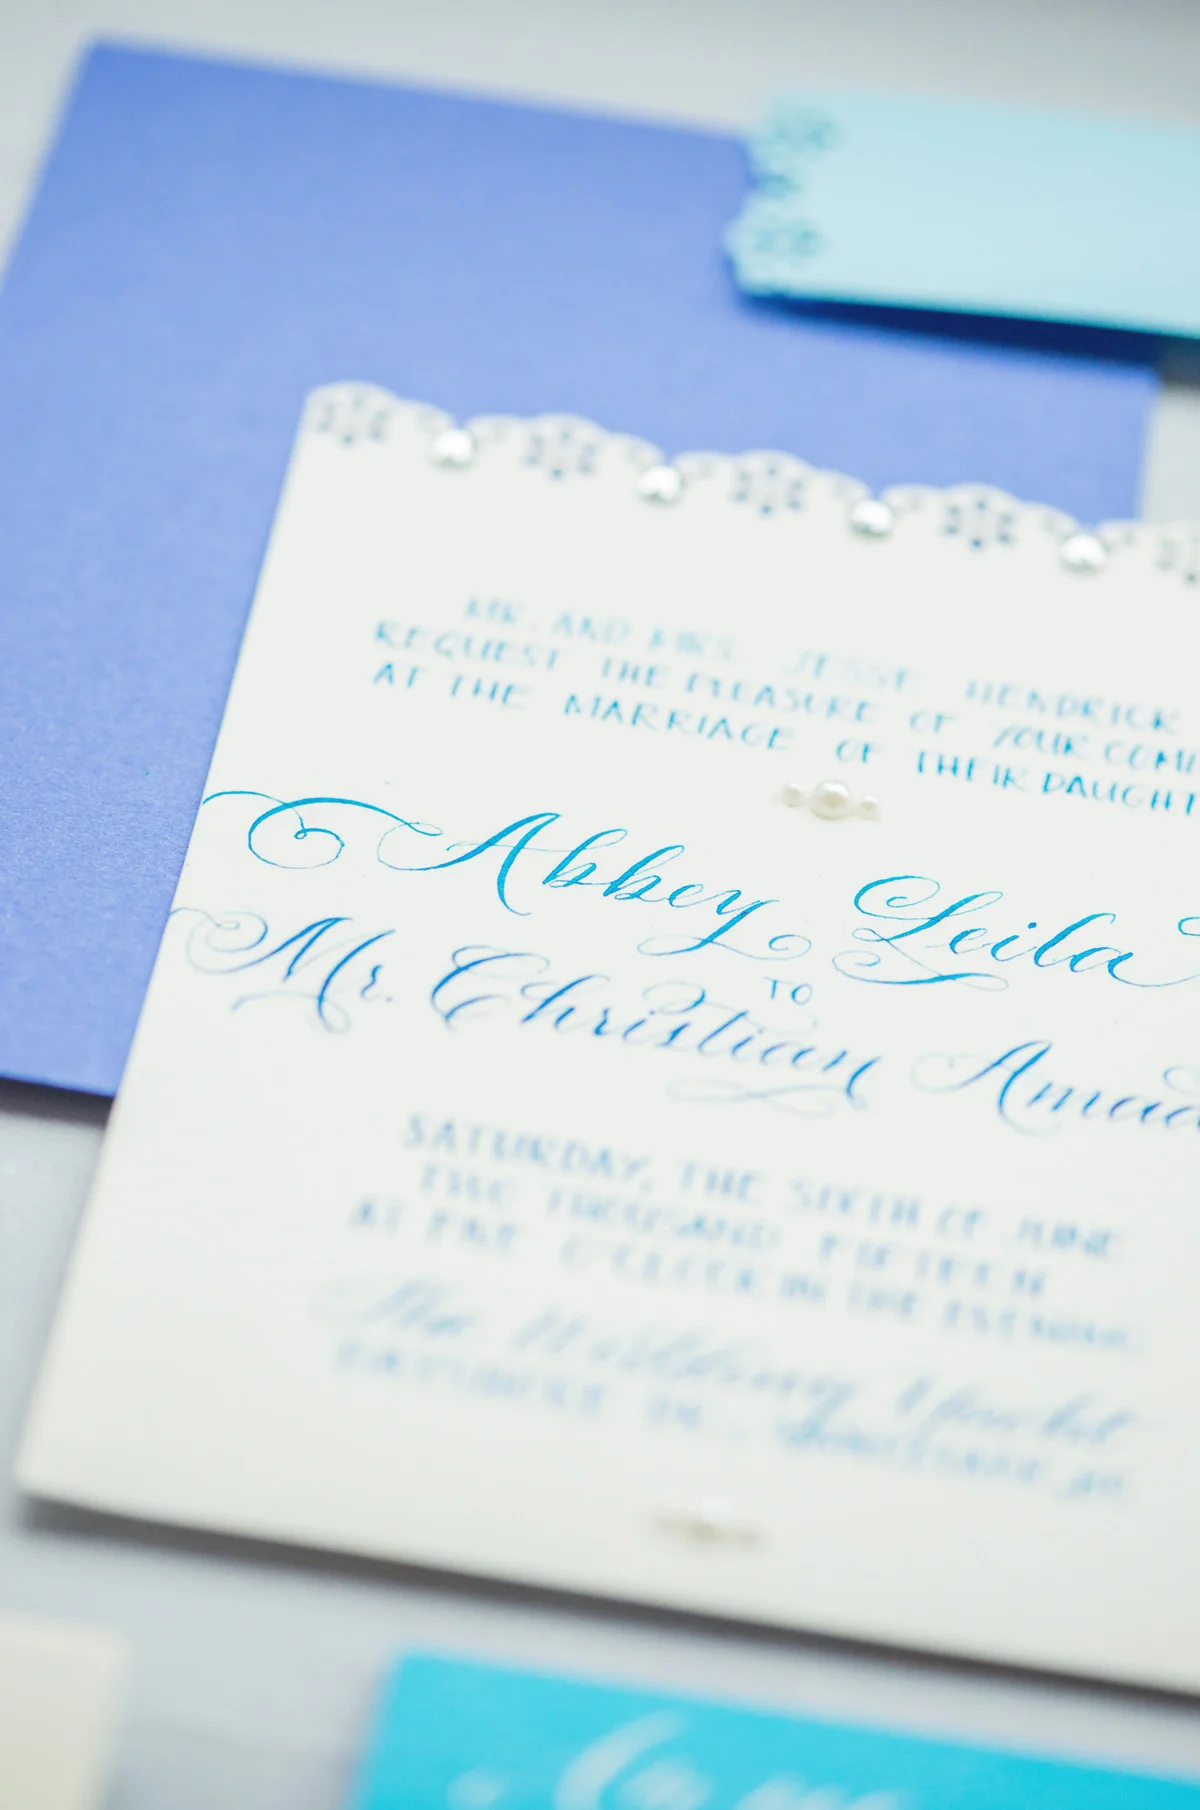 MR. AND MRS. JESSE HENDRICK
REQUEST THE PLEASURE OF YOUR COMP
AT THE MARRIAGE OF THEIR DAUGHT
Abbey Leila
TO
Mr. Christian Amad
SATURDAY, THE SIXTH OF JUNE
TWO THOUSAND FIFTEEN
AT FIVE O'CLOCK IN THE EVENING
The Wedding